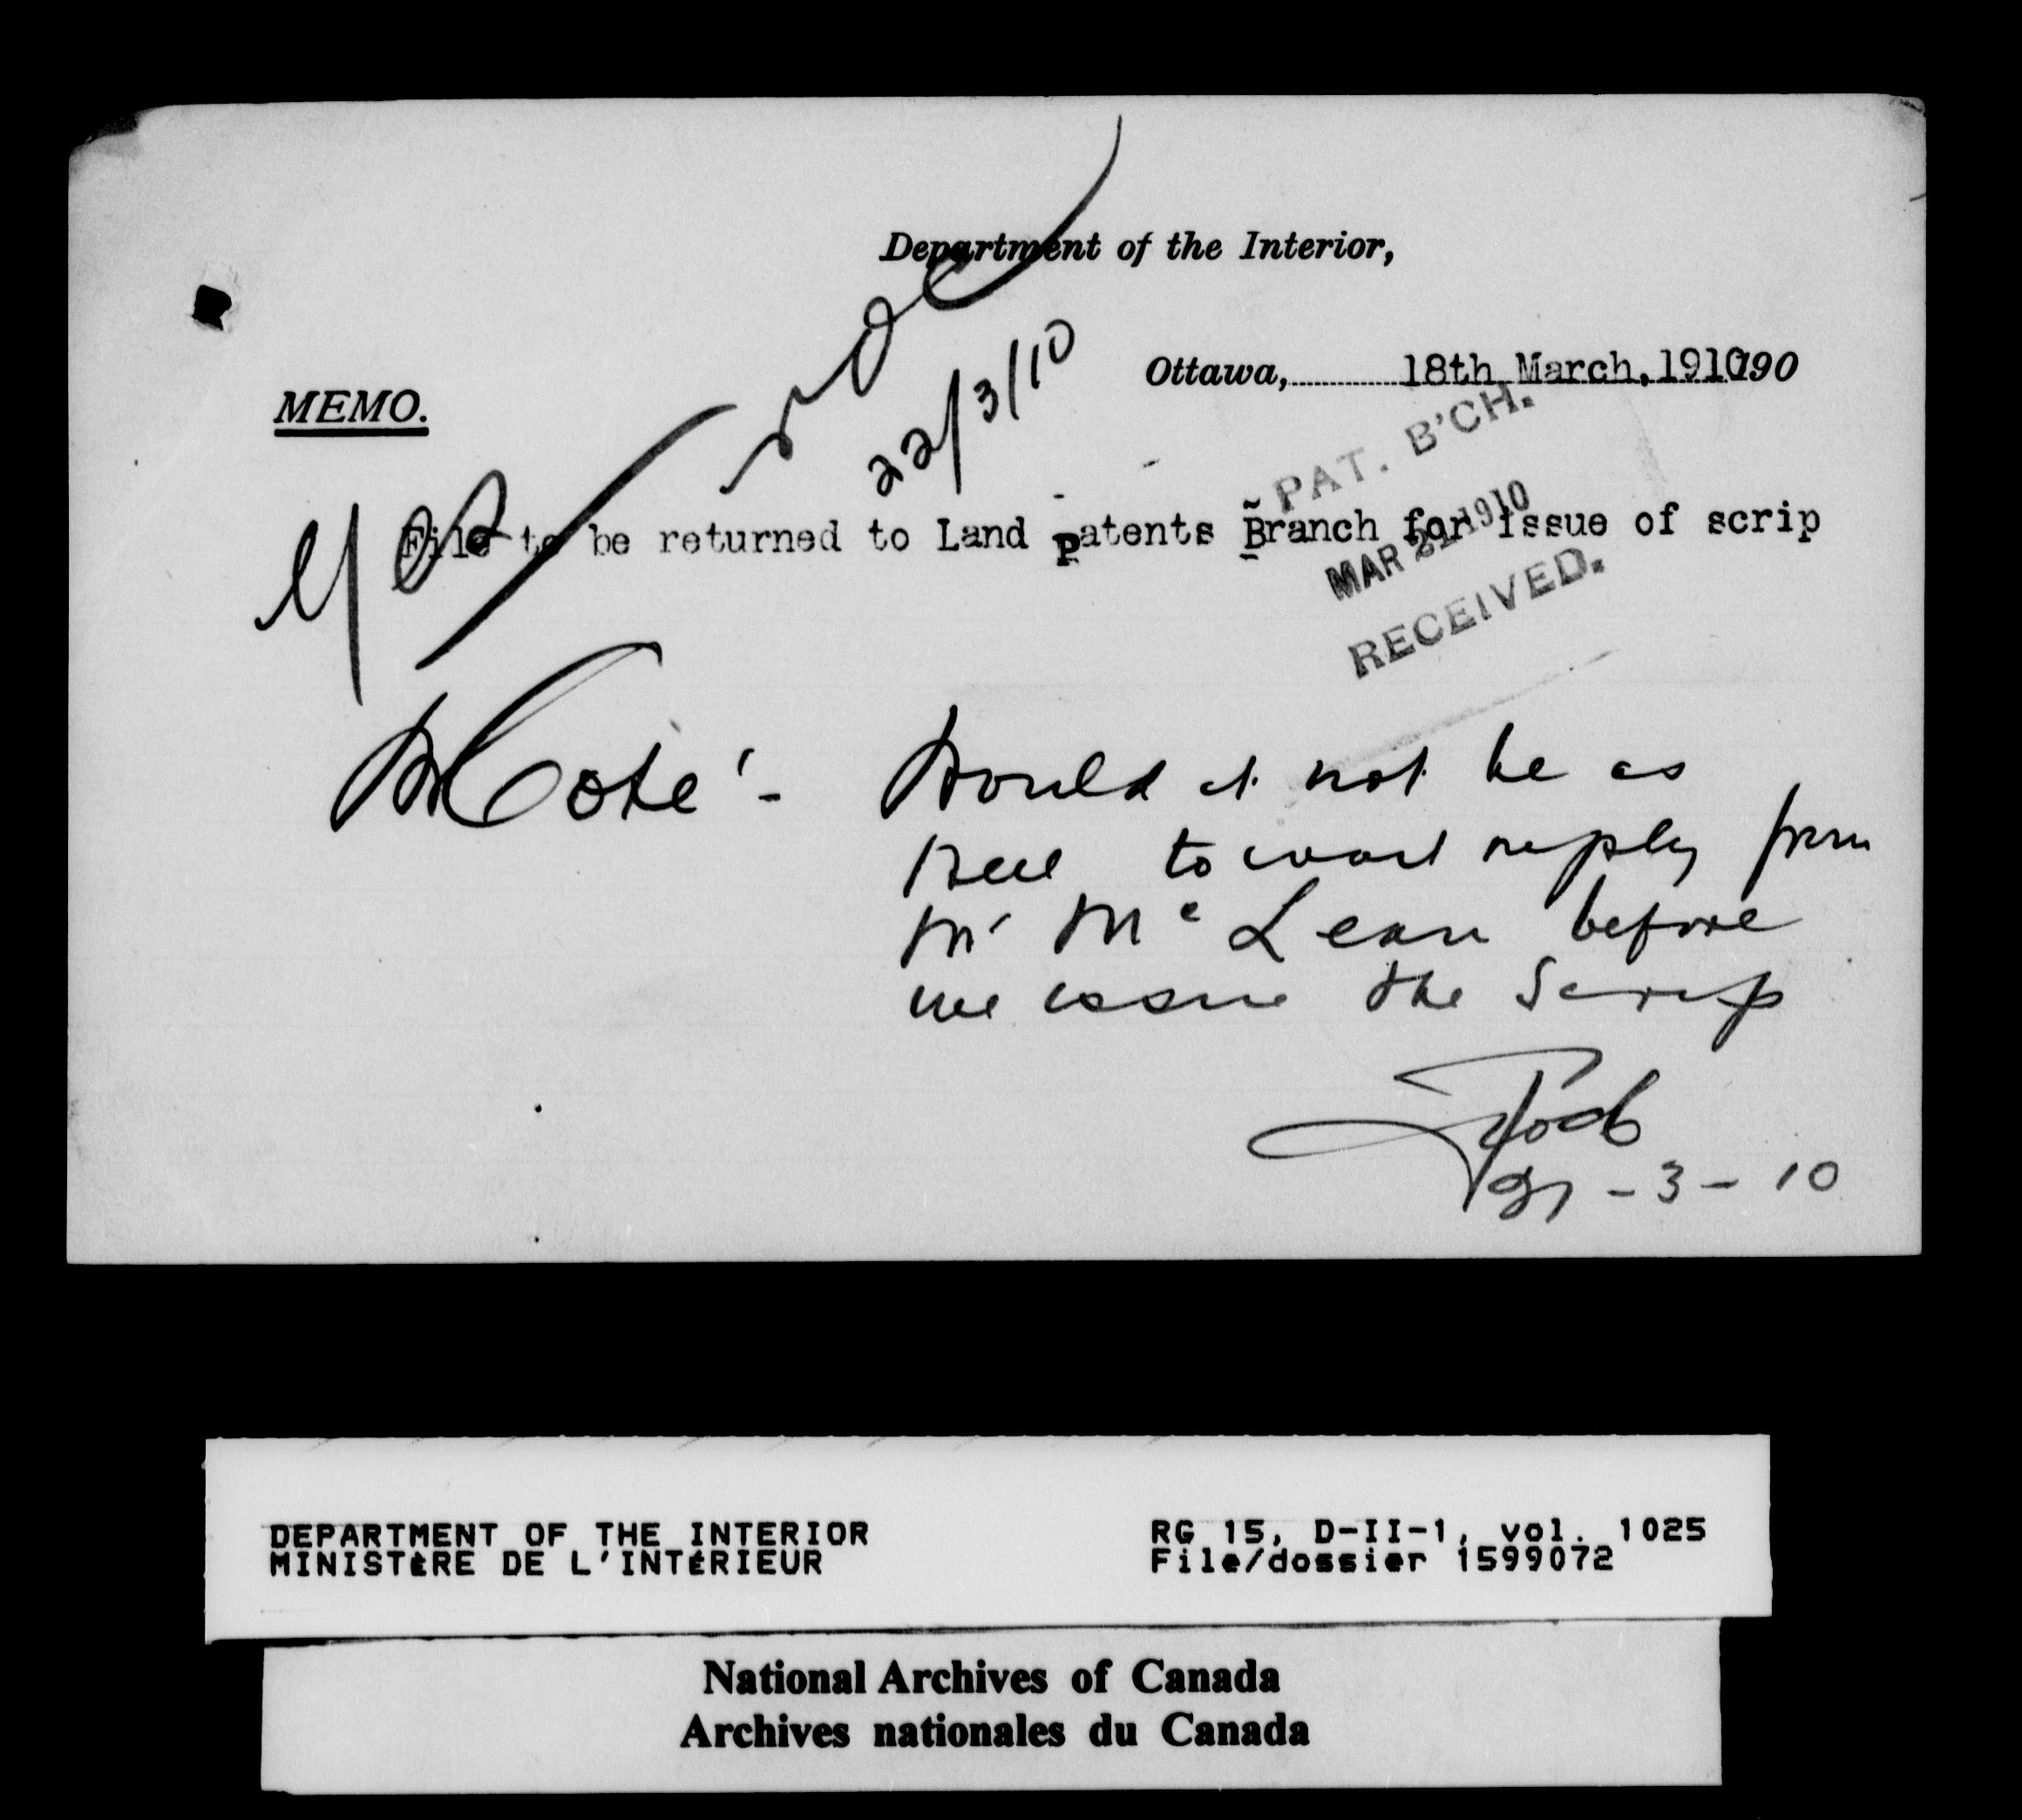 Department of the Interior,
Ottawa, 18th March, 1910 190
MEMO.
Yes
22/3/10
File to be returned to Land Patents Branch for issue of scrip
PAT. B'CH.
MAR 21 1910
RECEIVED.
Mr Coté - Would it not be as
well to wait reply from
Mr McLean before
we issue the Scrip
21-3-10
DEPARTMENT OF THE INTERIOR
MINISTÈRE DE L'INTÉRIEUR
RG 15, D-II-1, vol. 1025
File/dossier 1599072
National Archives of Canada
Archives nationales du Canada